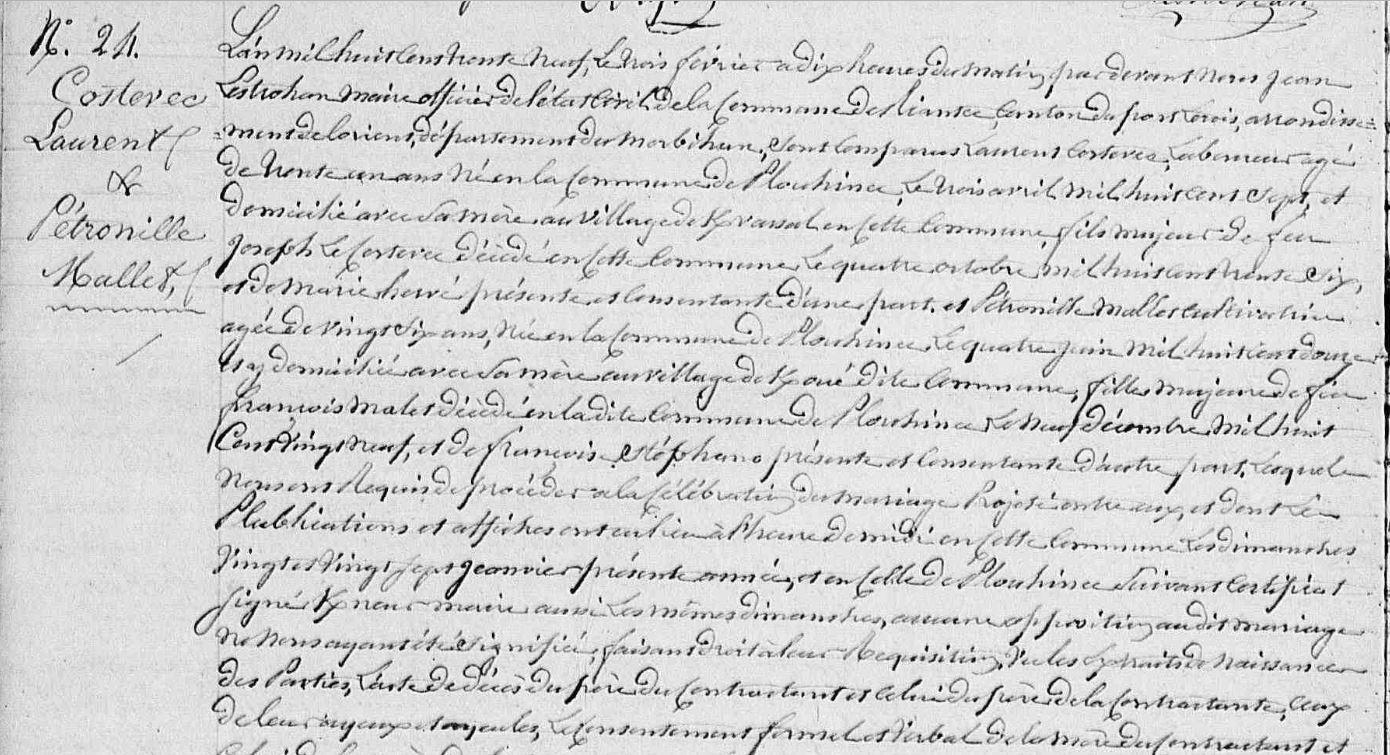 N.° 24.
Costevec
Laurent
&
Pétronille
Mallet,
L'an mil huit cent trente neuf, le trois février à dix heures du matin, par devant nous Jean
Lestrohan maire officier de l'état civil de la commune de Riantec, canton du port Louis, arrondisse=
=ment de Lorient, département du Morbihan, sont comparus Laurent Costevec, Laboureur agé
de trente un ans né en la commune de Plouhinec, le trois avril mil huit cent sept, et
domicilié avec sa mère au village de Kvassal en cette commune, fils majeur de feu
Joseph Le Costevec décédé en cette commune le quatre octobre mil huit cent trente six,
et de Marie hervé présente et consentante d'une part, et Pétronille Mallet cultivatrice
agée de vingt six ans, née en la commune de Plouhinec le quatre juin mil huit cent douze
et y domiciliée avec sa mère au village de Koué dite commune, fille majeure de feu
françois Malet décédé en la dite commune de Plouhinec le neuf décembre mil huit
Cent vingt neuf, et de françoise Stéphano présente et consentante d'autre part, Lesquels
nous ont Requis de procéder à la Célébration du mariage Projeté entre eux, et dont les
Plublications et affiches ont eu lieu à l'heure de midi en cette commune les dimanches
Vingt et Vingt sept Jeanvier présente année, et en celle de Plouhinec suivant certificat
signé Kneur maire aussi les mêmes dimanches, aucune opposition audit mariage
ne nous ayant été signifiée, faisant droit à leur Requisition, Vu les Extraits de Naissance
des Parties, L'acte de décès du père du Contractant et celui du père de la contractante, ceux
de leurs ayeux et ayeules, le consentement formel et verbal de la mère du contractant et